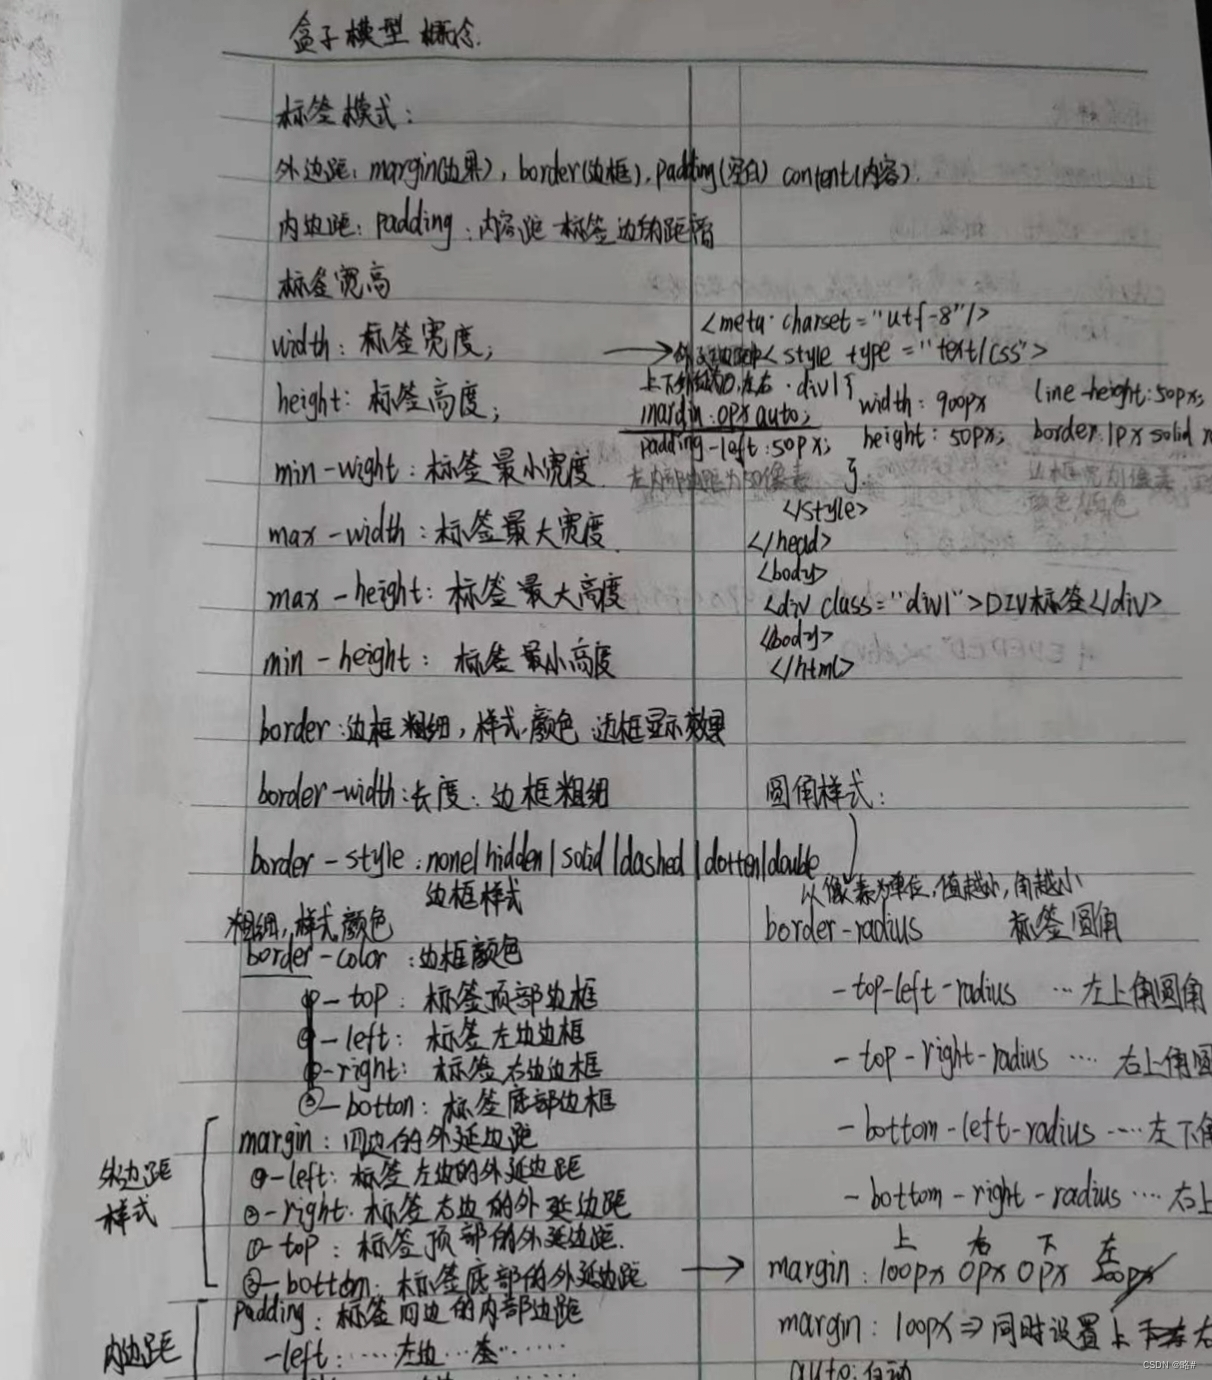 盒子模型 概念.
标签模式:
外边距: margin(边界), border(边框), padding(空白) content(内容).
内边距: padding: 内容距 标签边的距离
标签宽高
width: 标签宽度;
height: 标签高度;
min-wight: 标签最小宽度.
max-width: 标签最大宽度.
max-height: 标签最大高度
min-height: 标签最小高度
border: 边框粗细, 样式.颜色 边框显示效果
border-width: 长度: 边框粗细
border-style: none|hidden|solid|dashed|dotten|double
边框样式
粗细, 样式 颜色
border-color: 边框颜色
-top: 标签顶部边框
-left: 标签左边边框
-right: 标签右边边框
-botton: 标签底部边框
外边距
样式
margin: 四边的外延边距
-left: 标签左边的外延边距
-right: 标签右边的外延边距
-top: 标签顶部的外延边距.
-bottom: 标签底部的外延边距 →
内边距
padding: 标签四边的内部边距
-left: ····· 左边 ··· 左 ······
<meta charset="utf-8"/>
→ <style type="text/css">
上下 0,左右 .div1{
margin: 0px auto;
padding-left: 50px;
左内部边距为50像素
width: 900px
height: 50px;
line-height: 50px;
border: 1px solid
}
</style>
</head>
<body>
<div class="div1">DIV标签</div>
</body>
</html>
圆角样式:
以像素为单位, 值越小, 角越小
border-radius 标签圆角
-top-left-radius ··· 左上角圆角
-top-right-radius ···· 右上角圆
-bottom-left-radius ···· 左下角
-bottom-right-radius ···· 右上
上 右 下 左
margin: 100px 0px 0px
margin: 100px ⇒ 同时设置上
auto: 自动
CSDN @略#